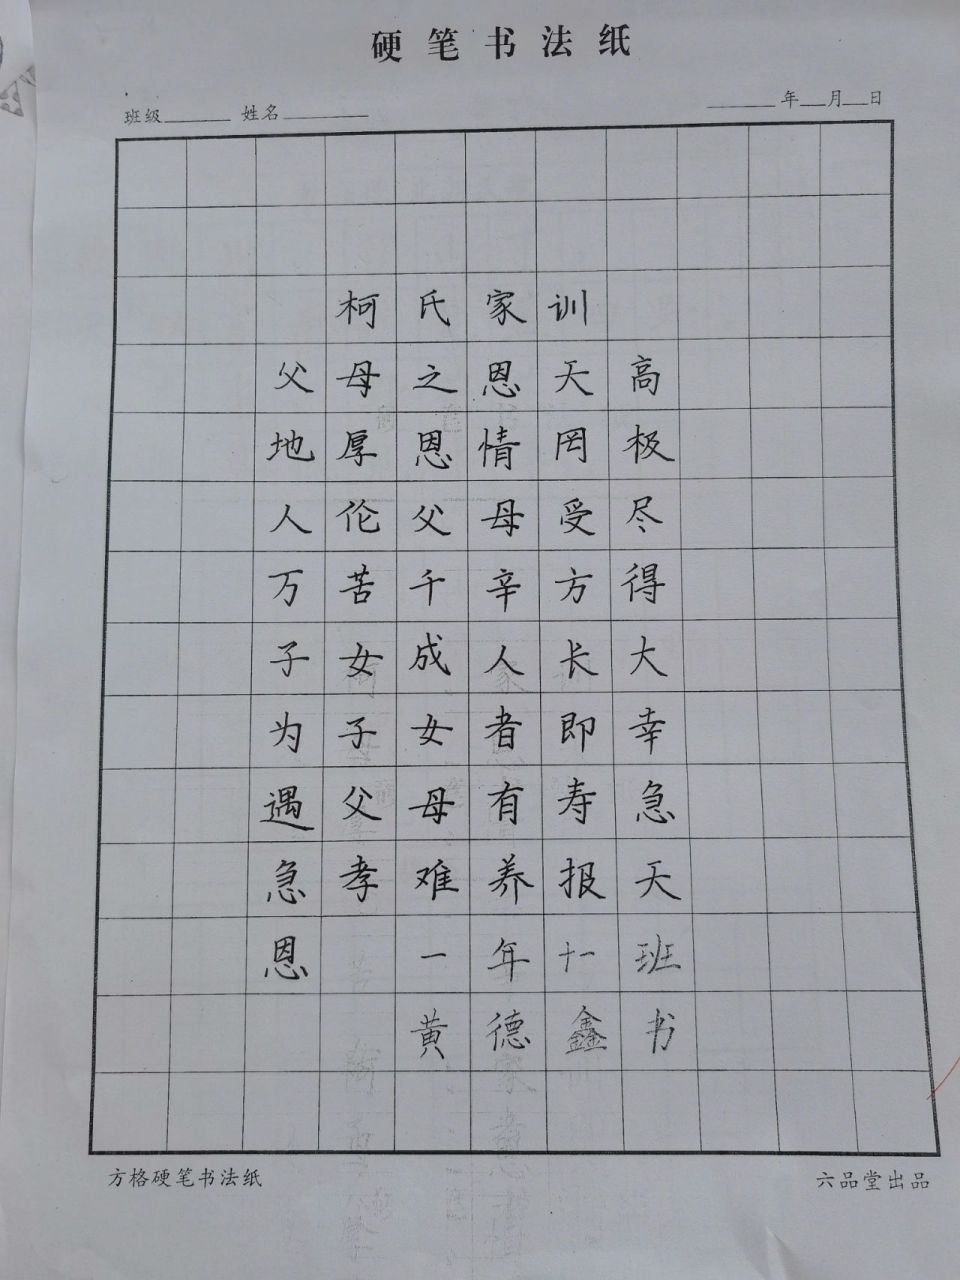 硬笔书法纸
班级 姓名 年 月 日
柯氏家训
父母之恩天高
地厚恩情罔极
人伦父母受尽
万苦千辛方得
子女成人长大
为子女者即幸
遇父母有寿急
急孝难养报天
恩 一年十一班
黄德鑫书
方格硬笔书法纸 六品堂出品